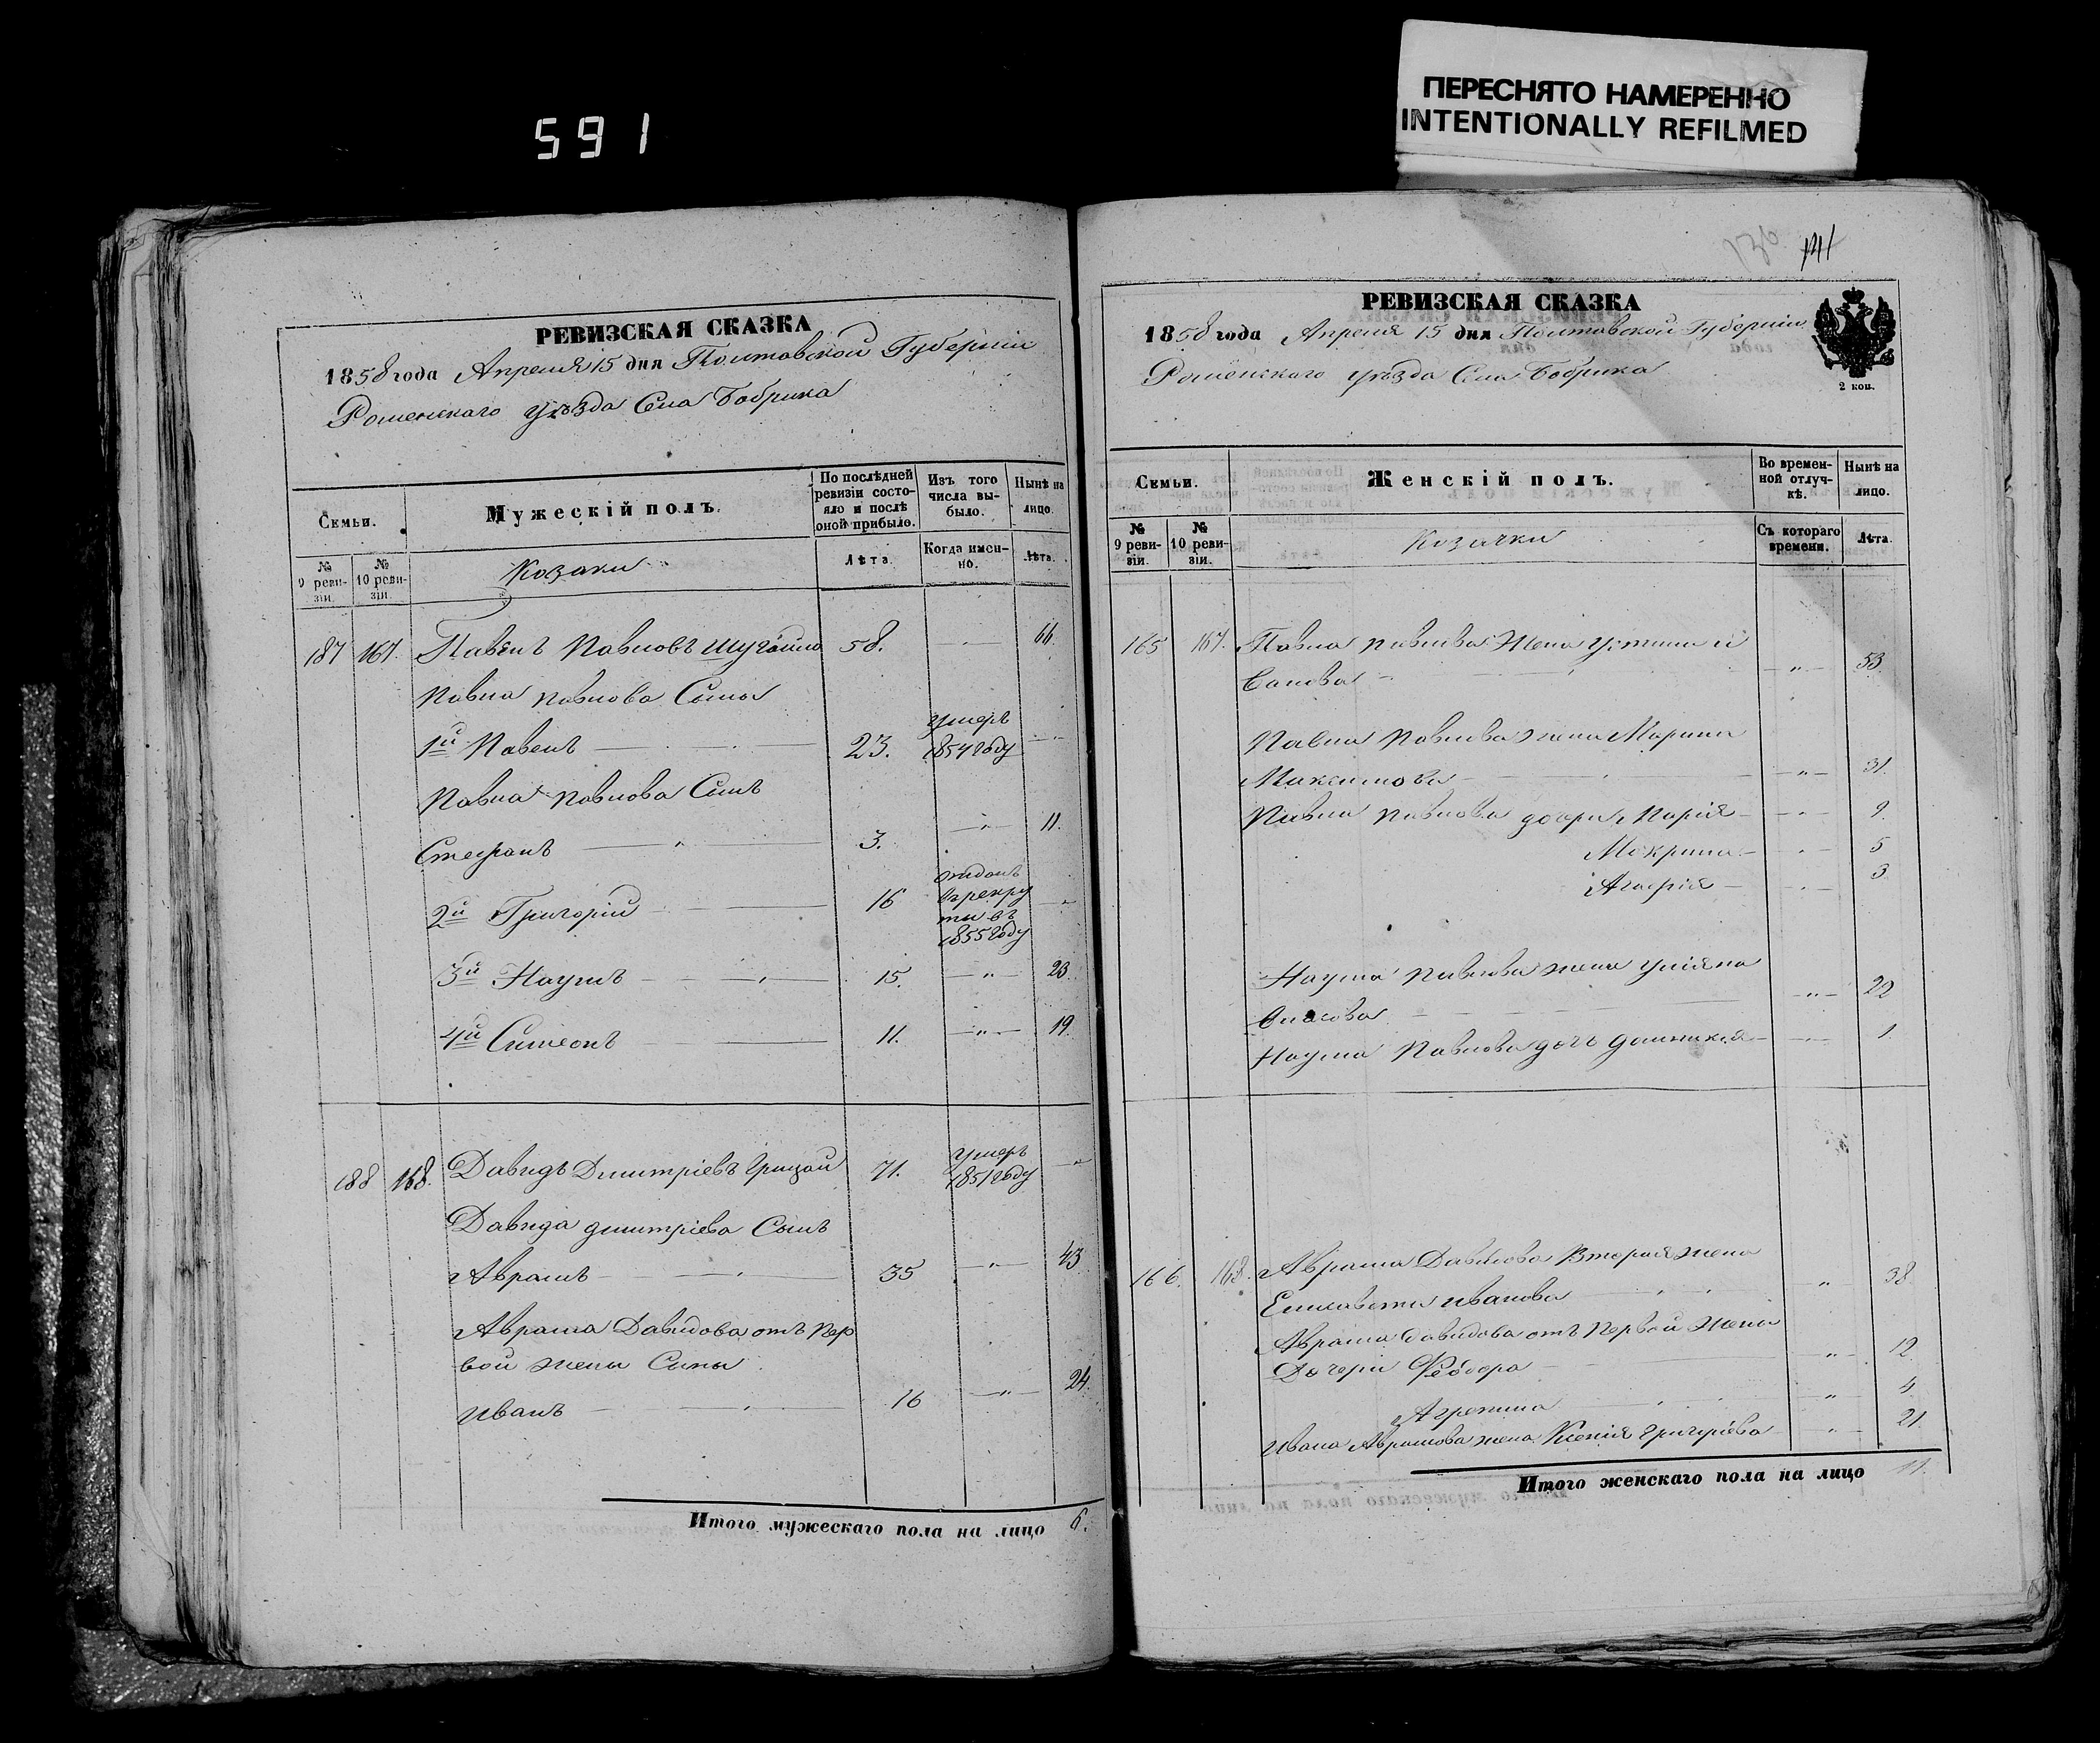 591
ПЕРЕСНЯТО НАМЕРЕННО
INTENTIONALLY REFILMED
РЕВИЗСКАЯ СКАЗКА
1858 года Апреля 15 дня Полтавской Губерніи
Роменскаго уѣзда Села Бобрика
Семьи.
Мужескій полъ.
По послѣдней ревизіи состояло и послѣ оной прибыло.
Изъ того числа выбыло.
Нынѣ на лицо.
№ 9 ревизіи.
№ 10 ревизіи.
Козаки
Лѣта
Когда именно.
Лѣта.
187 167. Павелъ Павловъ 58. 66.
Павла Павлова Сыны
1й Павелъ 23. умеръ 1854 году
Павла Павлова Сынъ
Стефанъ 3. 11.
2й Григорій 16 отданъ в рекруты въ 1855 году
3й Наумъ 15. 23.
4й Симеонъ 11. 19.
188 168. Давидъ Дмитріевъ Грицай 71. умеръ 1851 году
Давида дмитріева Сынъ
Аврамъ 35 43
Аврама Давидова отъ пер
вой жены Сыны
Иванъ 16 24.
Итого мужескаго пола на лицо 6.
136 141
РЕВИЗСКАЯ СКАЗКА
1858 года Апреля 15 дня Полтавской Губерніи
Роменскаго уѣзда Села Бобрика
2 коп.
Семьи.
Женскій полъ.
Во временной отлучкѣ.
Нынѣ на лицо.
№ 9 ревизіи.
№ 10 ревизіи.
Козачки
Съ котораго времени.
Лѣта.
165 167. Павла Павлова Жена
Савова 53.
Павла Павлова жена Марина
Максимова 31.
Павла Павлова дочери Марія 9.
Мокрина 5
Агафія 3
Наума Павлова жена Уліяна
Власова 22
Наума Павлова дочь Домникія 1.
166. 168. Аврама Давидова Вторая жена
Елисавета Иванова 38
Аврама Давидова отъ Первой Жены
Дочери Феодора 12.
Агрепина 4
Ивана Аврамова жена Ксенія Григоріева 21.
Итого женскаго пола на лицо 11.